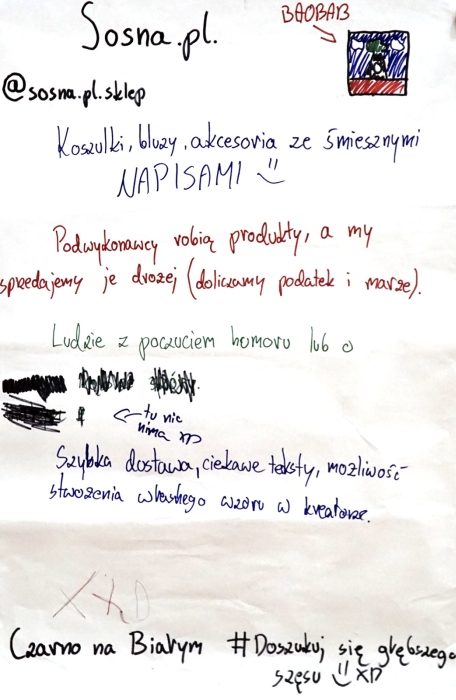 Sosna.pl.
BAOBAB
@sosna.pl.sklep
Koszulki, bluzy, akcesoria ze śmiesznymi
NAPISAMI
Podwykonawcy robią produkty, a my
sprzedajemy je drożej (doliczamy podatek i marże).
Ludzie z poczuciem homoru lub o
tu nie
nima XD
Szybka dostawa, ciekawe teksty, możliwość
stworzenia własnego wzoru w kreatorze.
XXD
Czarno na Białym #Doszukuj się głębszego
sęsu XD